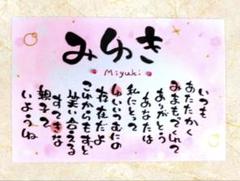 みゆき
Miyuki
いつも
あたたかく
みまもってくれて
ありがとう
あなたは
私にとって
ゆいいつむにの
存在だよ
これからもずっと
笑い合える
すてきな
親子で
いようね